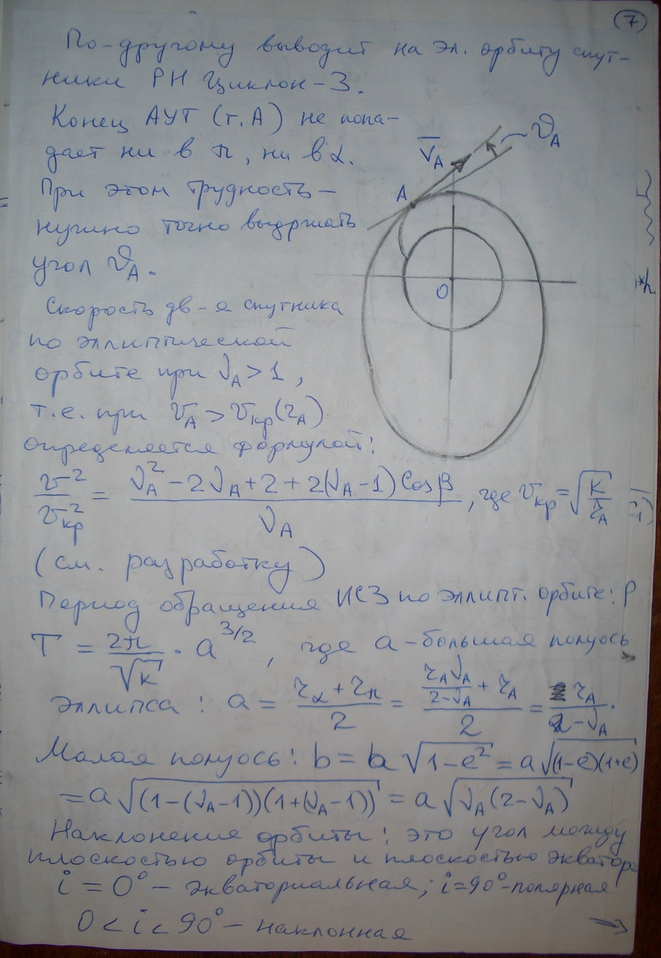 7
По-другому выводит на эл. орбиту спут-
ники РН Циклон-3.
Конец АУТ (т. А) не попа-
дает ни в π, ни в α.
При этом трудность –
нужно точно выдержать
угол ϑ_A.
V̅_A
ϑ_A
A
O
Скорость дв-я спутника
по эллиптической
орбите при ν_A > 1,
т.е. при v_A > v_кр(r_A)
определяется формулой:
v²/v²_кр = (ν_A² - 2ν_A + 2 + 2(ν_A - 1) Cos β)/ν_A, где v_кр = √(K/r_A)
(см. разработку)
Период обращения ИСЗ по эллипт. орбите:
T = 2π/√K · a^(3/2), где a – большая полуось
эллипса: a = (r_α + r_π)/2 = (r_A ν_A/(2-ν_A) + r_A)/2 = r_A/(2-ν_A).
Малая полуось: b = a √(1-e²) = a √((1-e)(1+e))
= a √((1-(ν_A-1))(1+(ν_A-1))) = a √(ν_A(2-ν_A))
Наклонение орбиты: это угол между
плоскостью орбиты и плоскостью экватора
i = 0° – экваториальная; i = 90° – полярная
0 < i < 90° – наклонная →